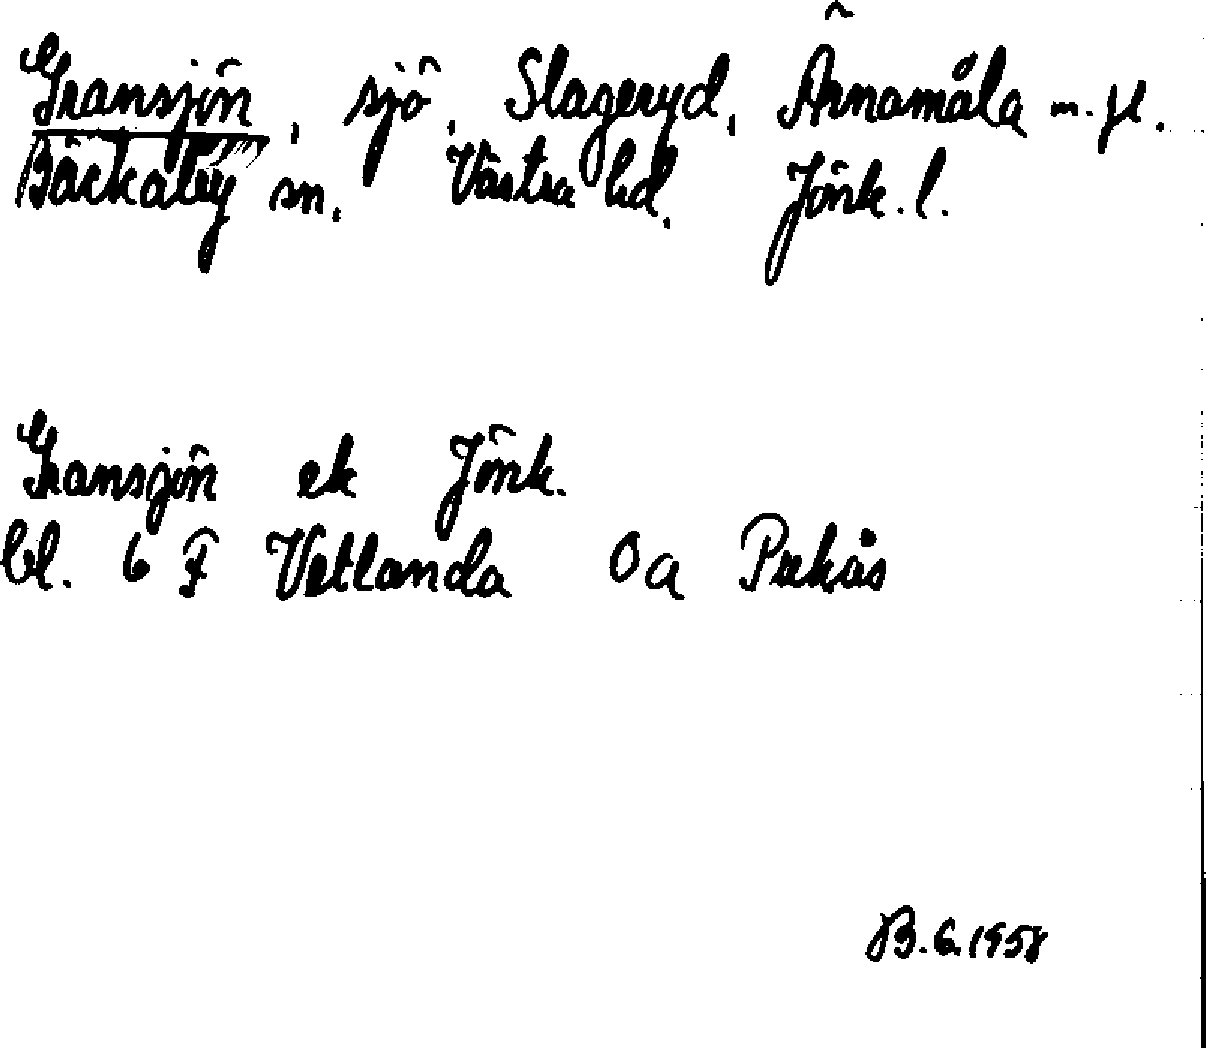 Gransjön, sjö, Slageryd, Ärnamåla m.fl.
Bäckaby sn. Västra hd. Jönk. l.
Gransjön ek Jönk.
bl. 6 F Vetlanda 0a Pukås
B.G. 1958